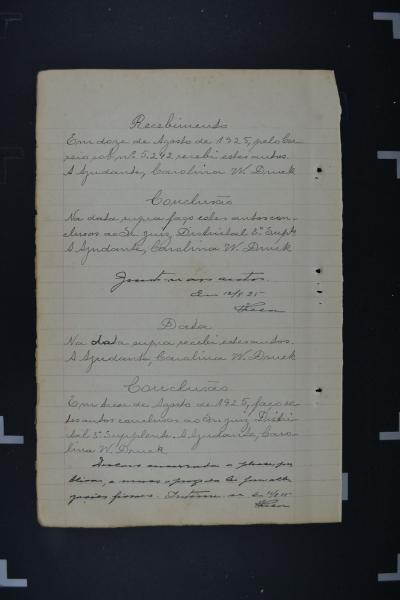 Recebimento
Em doze de Agosto de 1925, pelo Cor-
reio sob nº 5.242 recebi estes autos.
A Ajudante, Carolina W. Druck
Conclusão
Na data supra faço estes autos con-
clusos ao Sr. Juiz Districtal 2º Supte
A Ajudante, Carolina W. Druck
aos autos.
Em 12/8 25
Data
Na data supra recebi estes autos.
A Ajudante, Carolina W. Druck
Conclusão
Em treze de Agosto de 1925, faço es-
tes autos conclusos ao Sr. Juiz Distri-
tal Supplente. A Ajudante, Caro-
lina W. Druck
encerrada a
finaes.